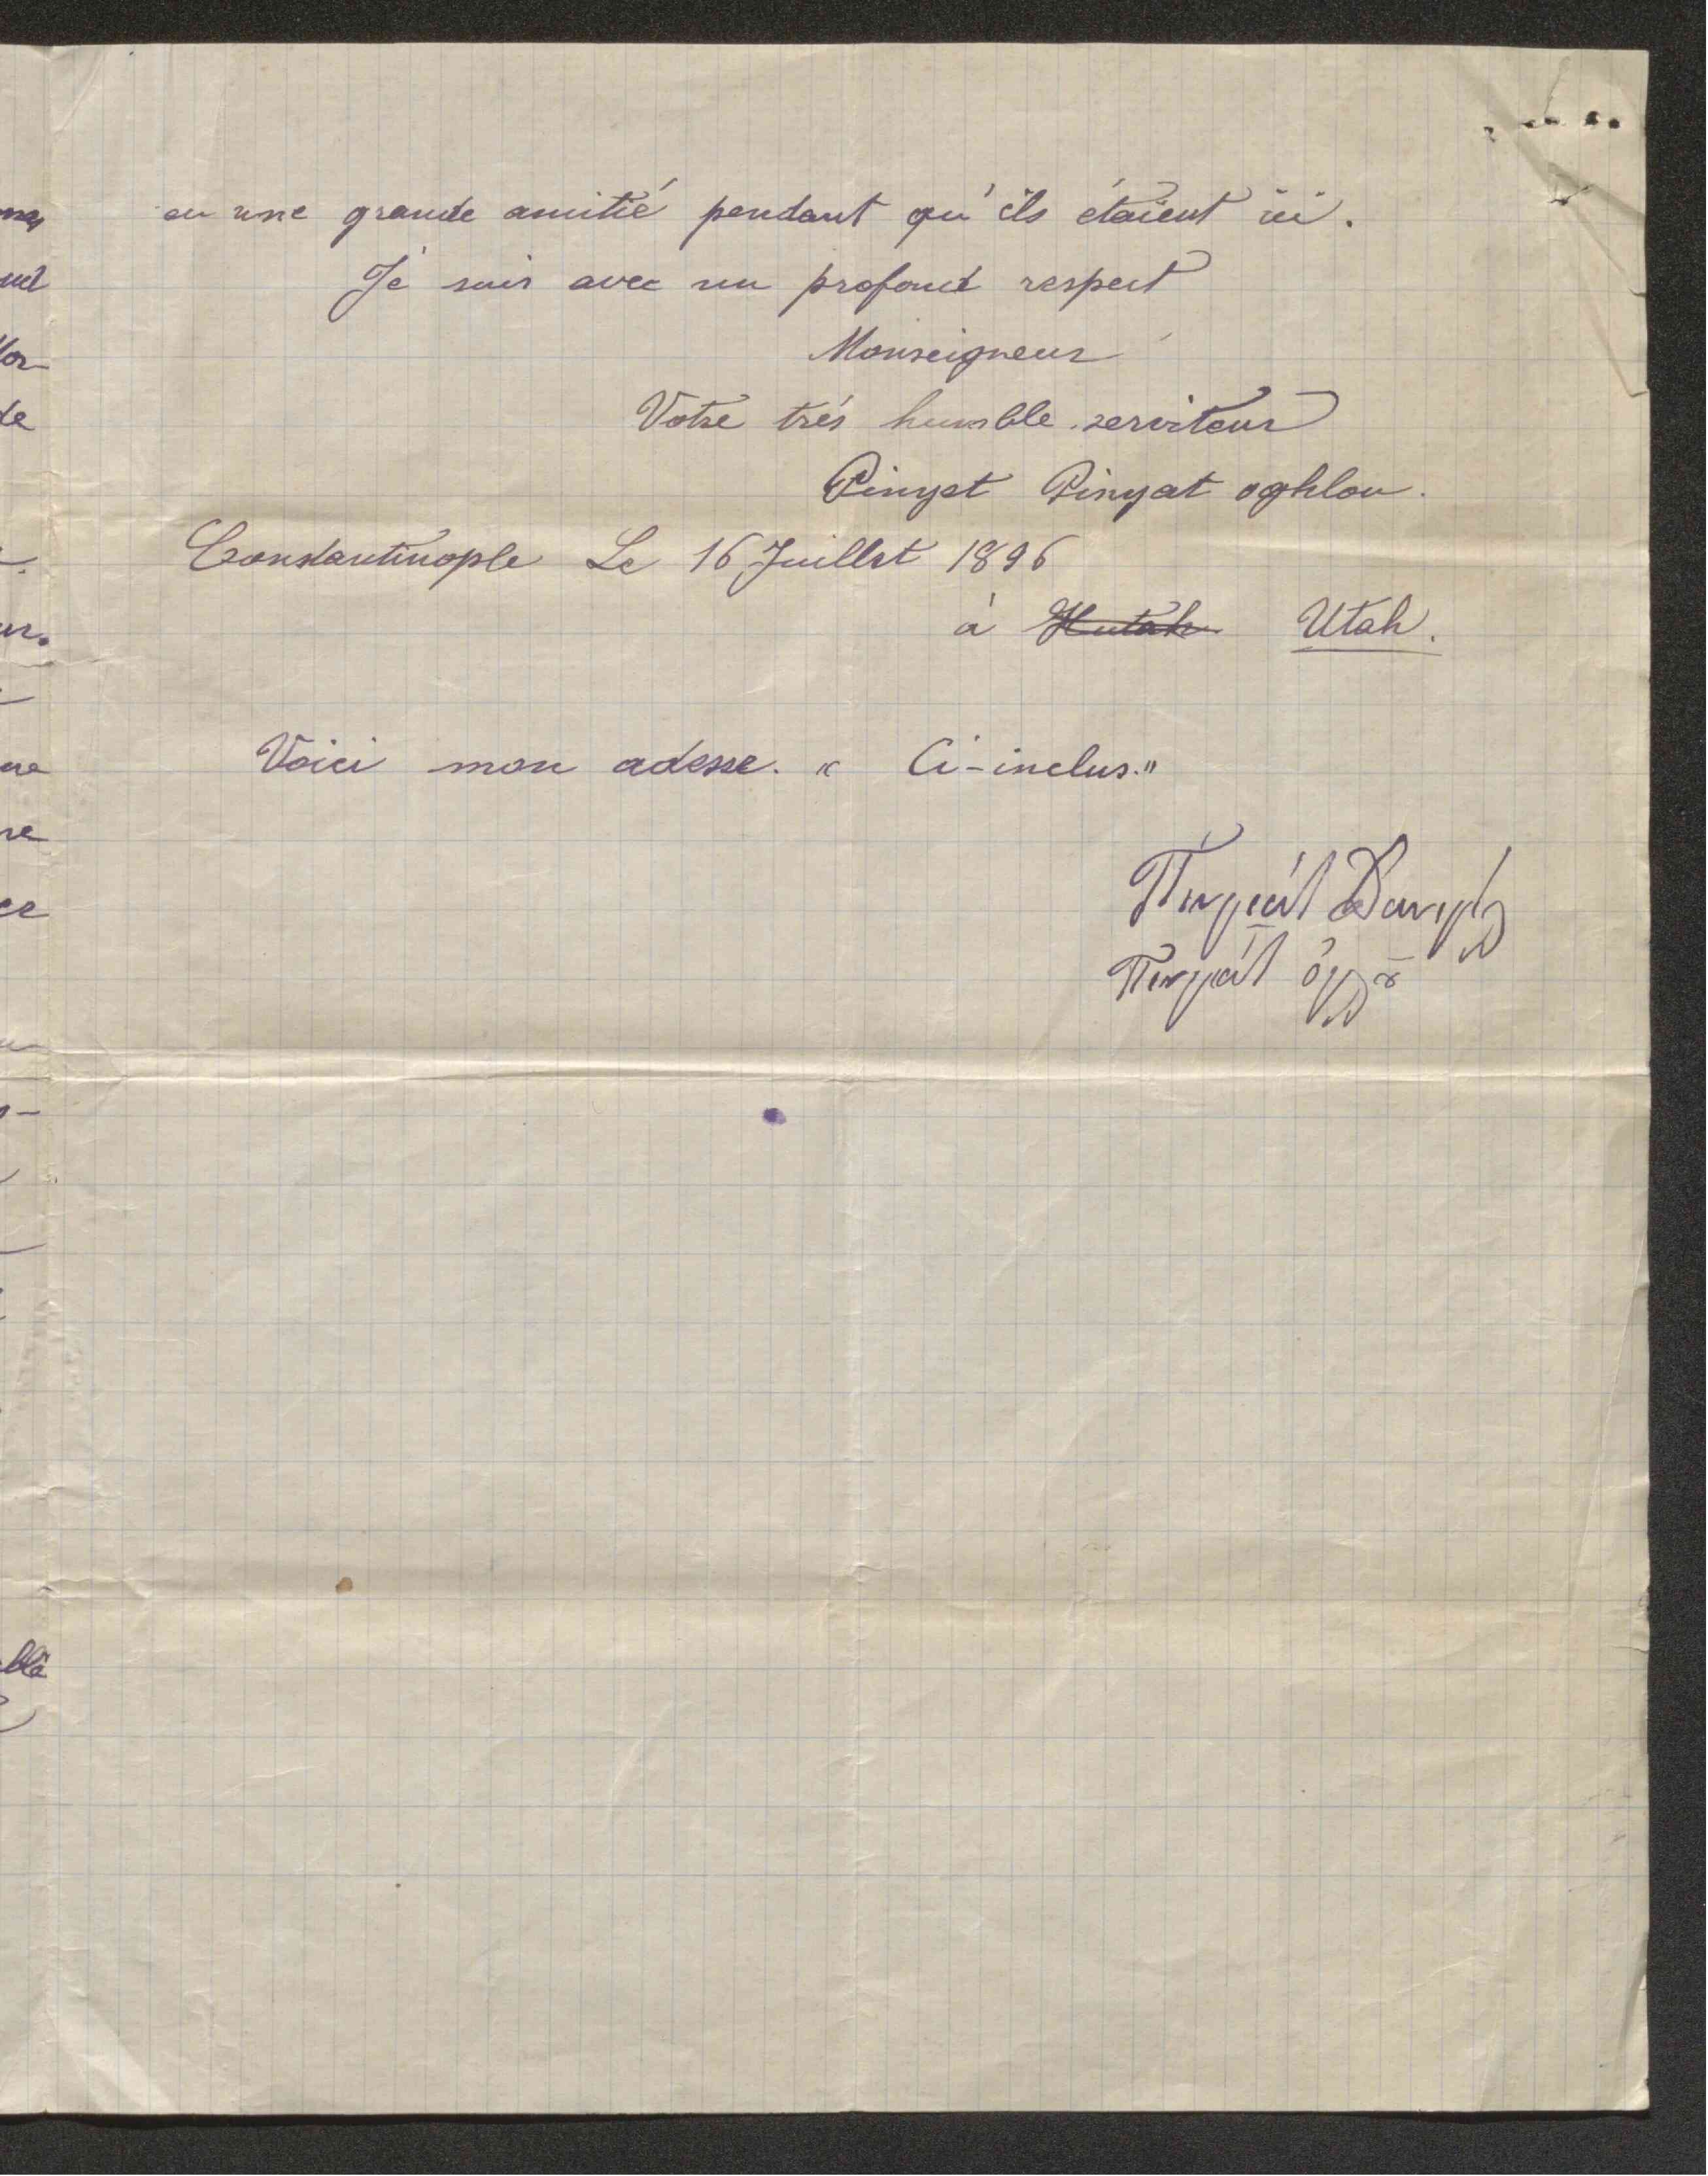 eu une grande amitié pendant qu'ils étaient ici.
Je suis avec un profond respect
Monseigneur
Votre trés humble serviteur
Pinyat Pinyat oghlou.
Constantinople Le 16 Juillet 1896
à Hutah Utah.
Voici mon adesse. « Ci-inclus."
Πινγιάτ
Πινγιάτ